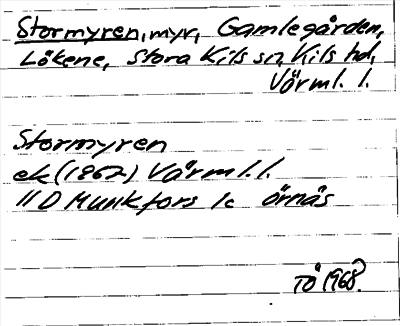 Stormyren, myr, Gamlegården,
Lökene, Stora Kils sn, Kils hd,
Värml. l.
Stormyren
ek (1862) Värml. l.
11D Munkfors 1c örnäs
TÅ 1968.